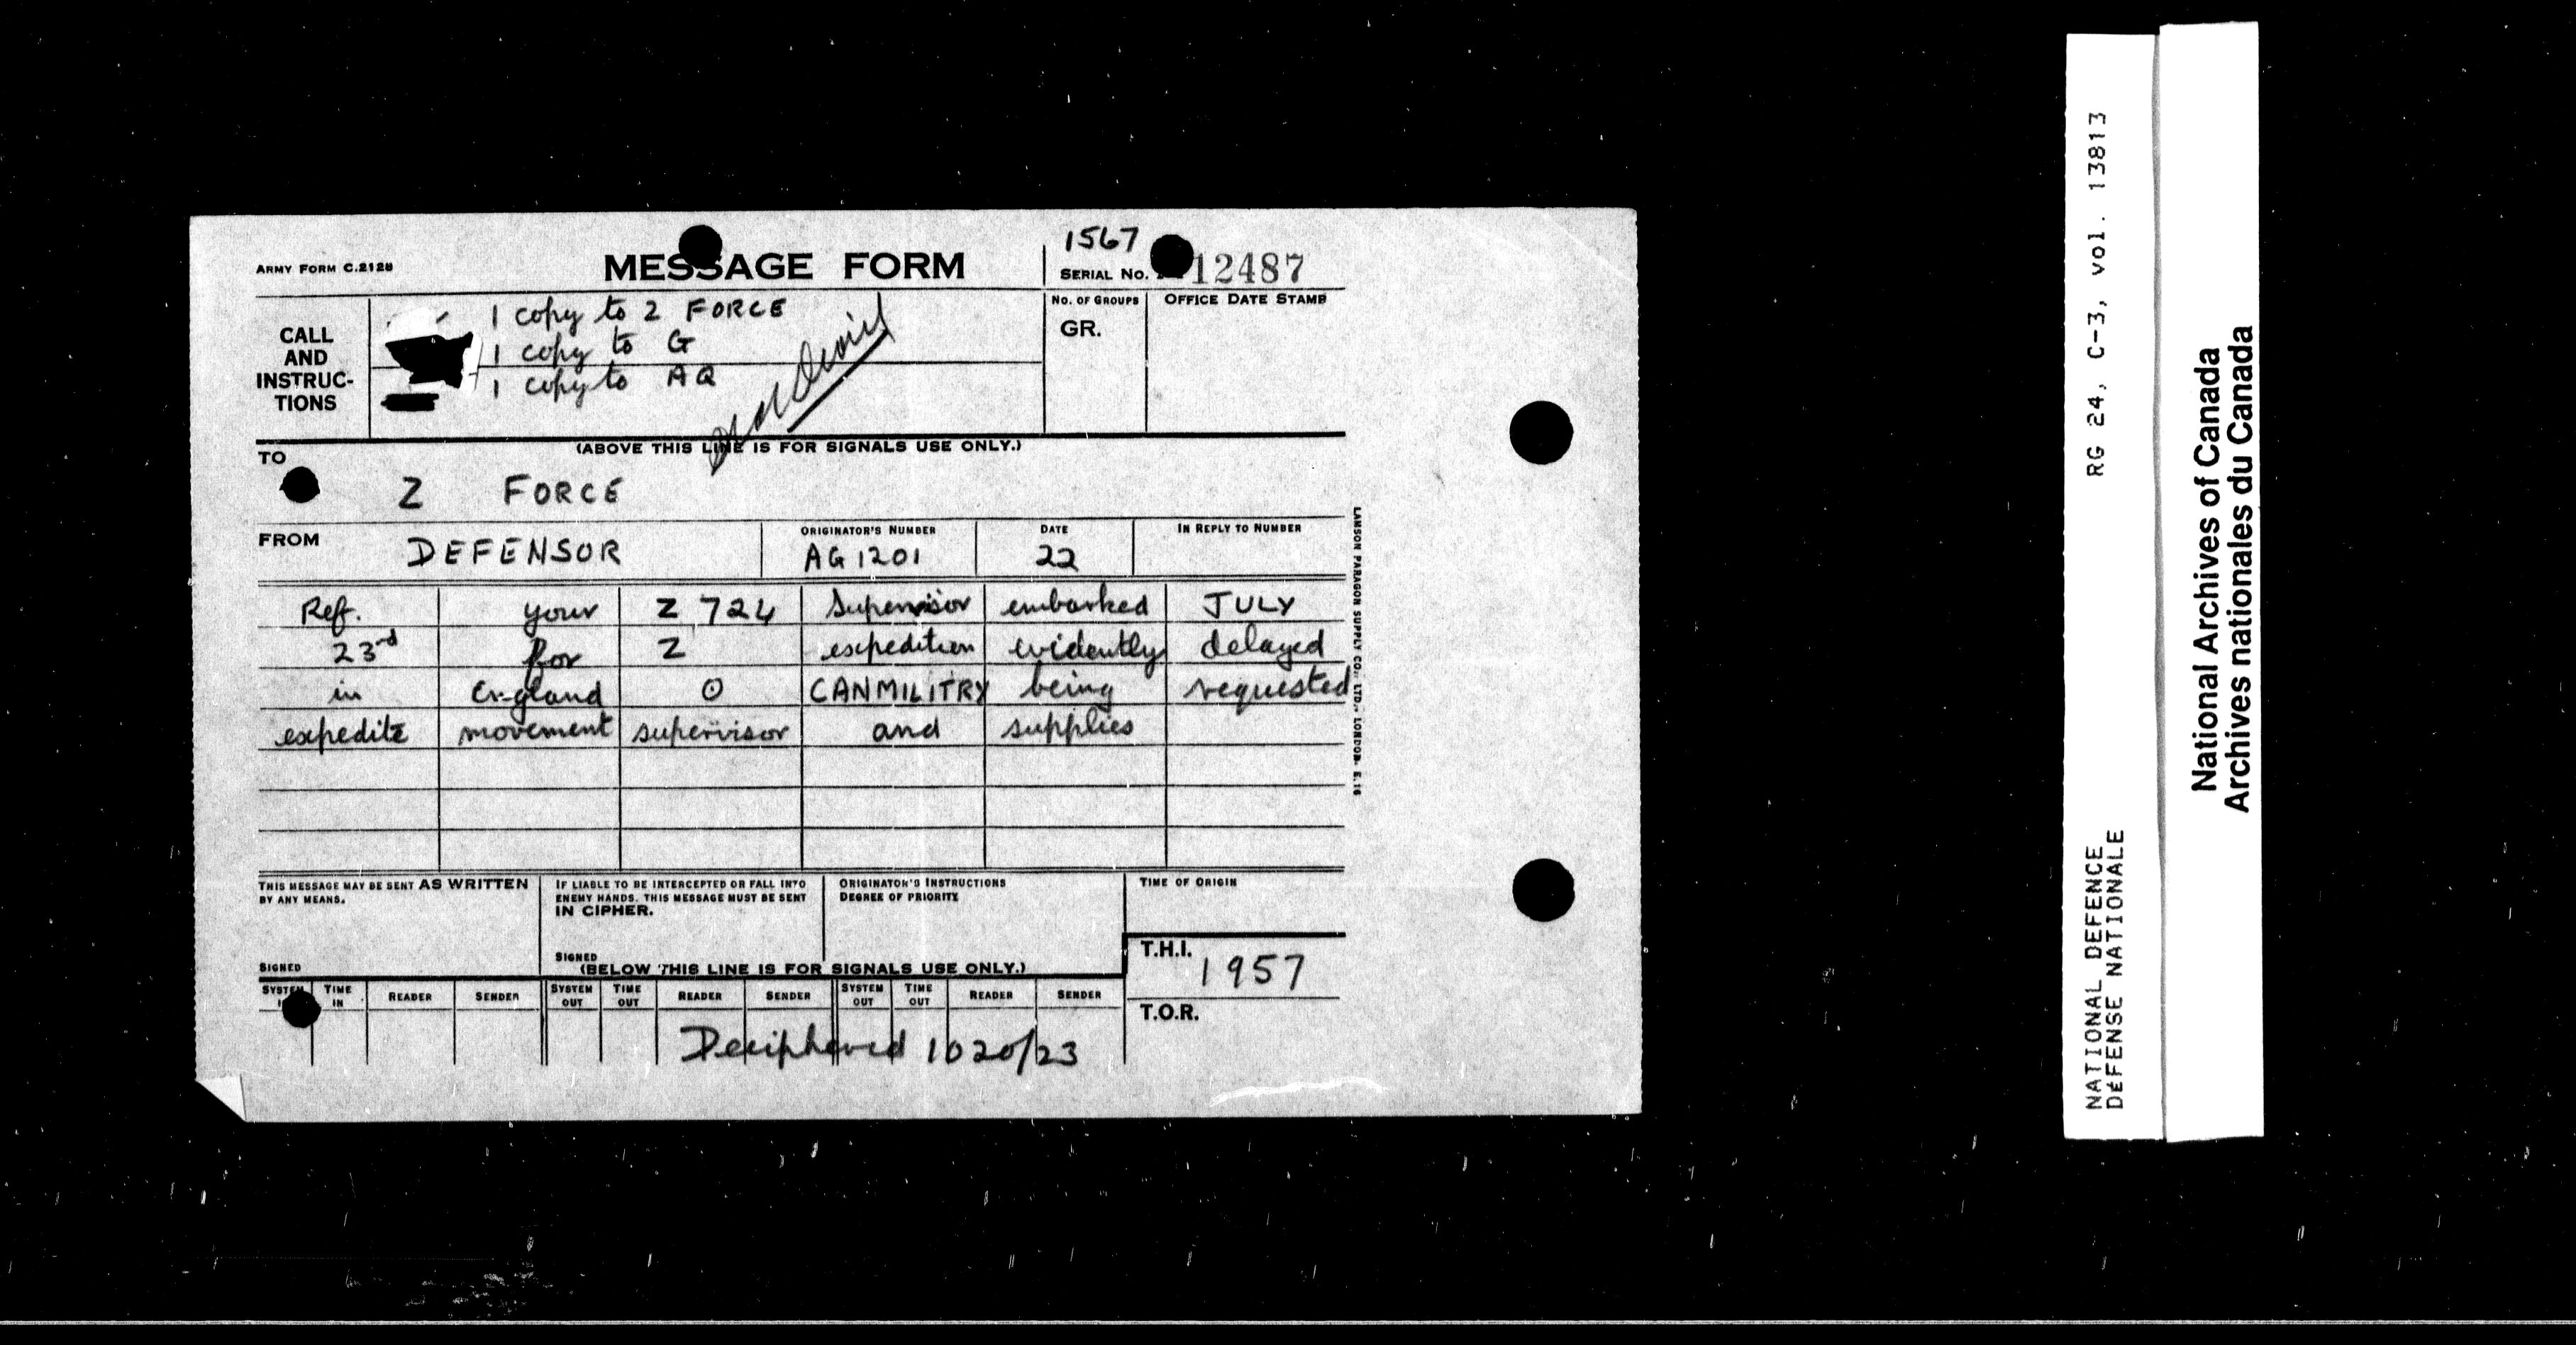 1567
ARMY FORM C.2128
MESSAGE FORM
SERIAL NO. 12487
CALL AND INSTRUC-TIONS
1 copy to Z FORCE
1 copy to G
1 copy to AQ
NO. OF GROUPS
GR.
OFFICE DATE STAMP
(ABOVE THIS LINE IS FOR SIGNALS USE ONLY.)
TO
Z FORCE
FROM
DEFENSOR
ORIGINATOR'S NUMBER
AG 1201
DATE
22
IN REPLY TO NUMBER
Ref. your Z 724 Supervisor embarked JULY
23rd for Z expedition evidently delayed
in England O CANMILITRY being requested
expedite movement supervisor and supplies
LAMSON PARAGON SUPPLY CO., LTD., LONDON. E.16
THIS MESSAGE MAY BE SENT AS WRITTEN
BY ANY MEANS.
SIGNED
IF LIABLE TO BE INTERCEPTED OR FALL INTO
ENEMY HANDS. THIS MESSAGE MUST BE SENT
IN CIPHER.
SIGNED
ORIGINATOR'S INSTRUCTIONS
DEGREE OF PRIORITY
TIME OF ORIGIN
(BELOW THIS LINE IS FOR SIGNALS USE ONLY.)
T.H.I. 1957
T.O.R.
SYSTEM IN TIME IN READER SENDER SYSTEM OUT TIME OUT READER SENDER SYSTEM OUT TIME OUT READER SENDER
Deciphered 1020/23
RG 24, C-3, vol. 13813
NATIONAL DEFENCE
DÉFENSE NATIONALE
National Archives of Canada
Archives nationales du Canada